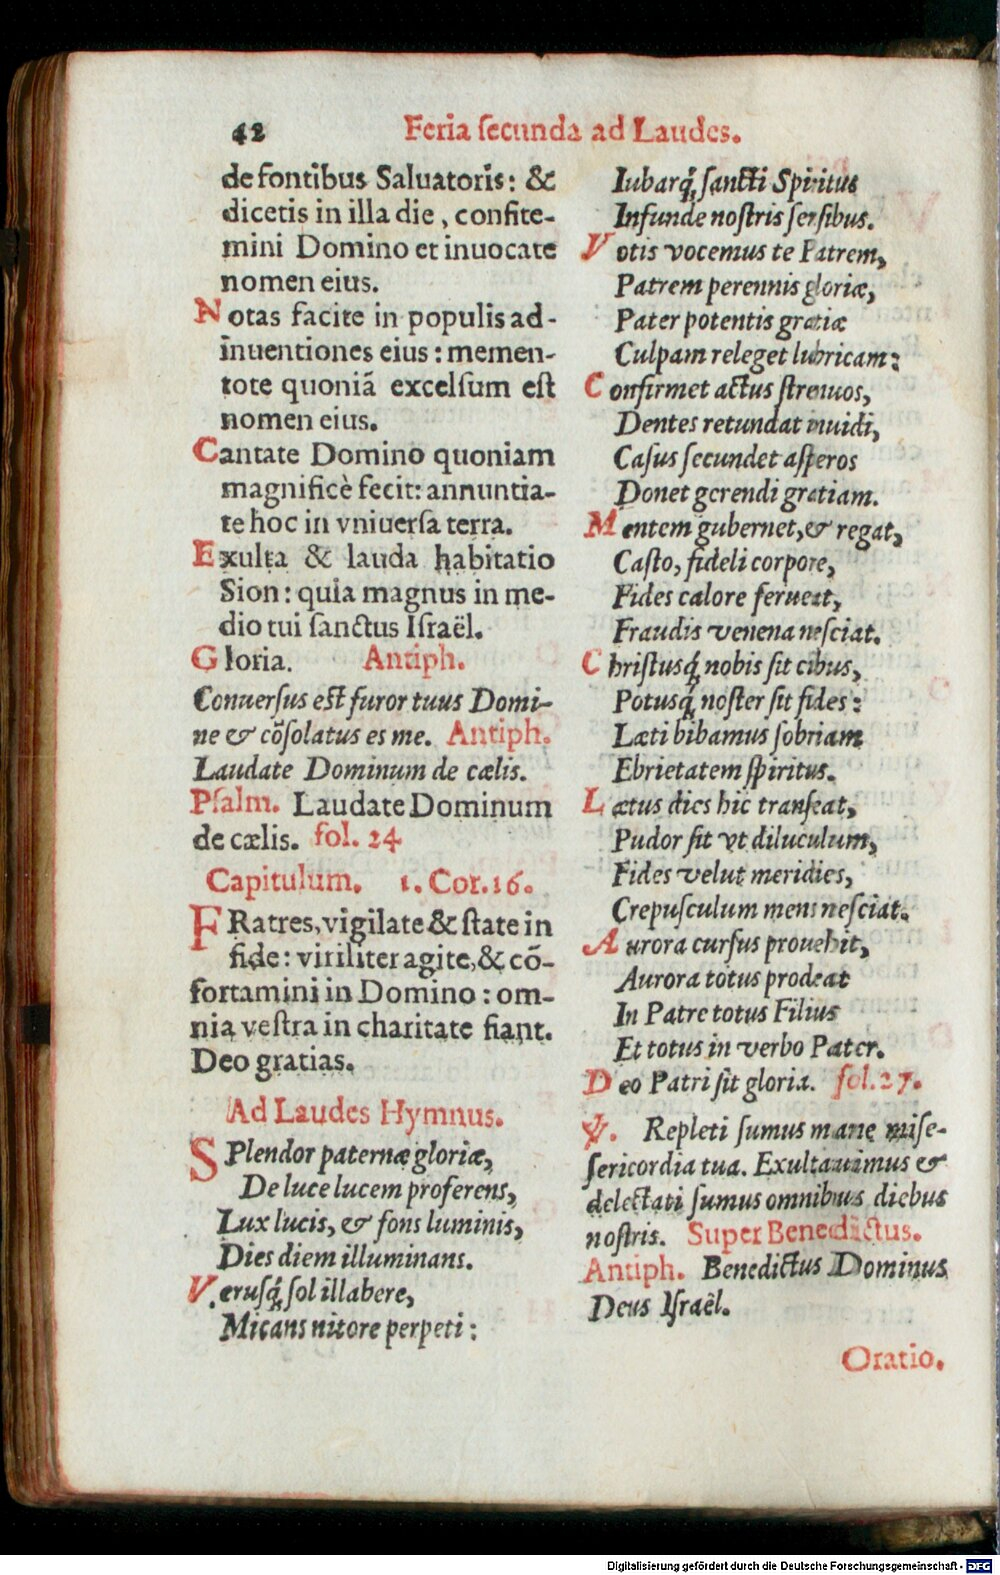 42 Feria secunda ad Laudes.
de fontibus Saluatoris: &
dicetis in illa die, confite-
mini Domino et inuocate
nomen eius.
Notas facite in populis ad-
inuentiones eius: memen-
tote quoniã excelsum est
nomen eius.
Cantate Domino quoniam
magnificè fecit: annuntia-
te hoc in vniuersa terra.
Exulta & lauda habitatio
Sion: quia magnus in me-
dio tui sanctus Israël.
Gloria. Antiph.
Conuersus est furor tuus Domi-
ne & cõsolatus es me. Antiph.
Laudate Dominum de cælis.
Psalm. Laudate Dominum
de cælis. fol. 24
Capitulum. 1. Cor. 16.
FRatres, vigilate & state in
fide: viriliter agite, & cõ-
fortamini in Domino: om-
nia vestra in charitate fiant.
Deo gratias.
Ad Laudes Hymnus.
SPlendor paternæ gloriæ,
De luce lucem proferens,
Lux lucis, & fons luminis,
Dies diem illuminans.
Verusq́; sol illabere,
Micans nitore perpeti:
Iubarq́; sancti Spiritus
Infunde nostris sensibus.
Votis vocemus te Patrem,
Patrem perennis gloriæ,
Pater potentis gratiæ
Culpam releget lubricam:
Confirmet actus strenuos,
Dentes retundat inuidi,
Casus secundet asperos
Donet gerendi gratiam.
Mentem gubernet, & regat,
Casto, fideli corpore,
Fides calore ferueat,
Fraudis venena nesciat.
Christusq́; nobis sit cibus,
Potusq́; noster sit fides:
Læti bibamus sobriam
Ebrietatem spiritus.
Lætus dies hic transeat,
Pudor sit vt diluculum,
Fides velut meridies,
Crepusculum mens nesciat.
Aurora cursus prouehit,
Aurora totus prodeat
In Patre totus Filius
Et totus in verbo Pater.
Deo Patri sit gloria. fol. 27.
℣. Repleti sumus mane mise-
sericordia tua. Exultauimus &
delectati sumus omnibus diebus
nostris. Super Benedictus.
Antiph. Benedictus Dominus
Deus Israël.
Oratio.
Digitalisierung gefördert durch die Deutsche Forschungsgemeinschaft - DFG